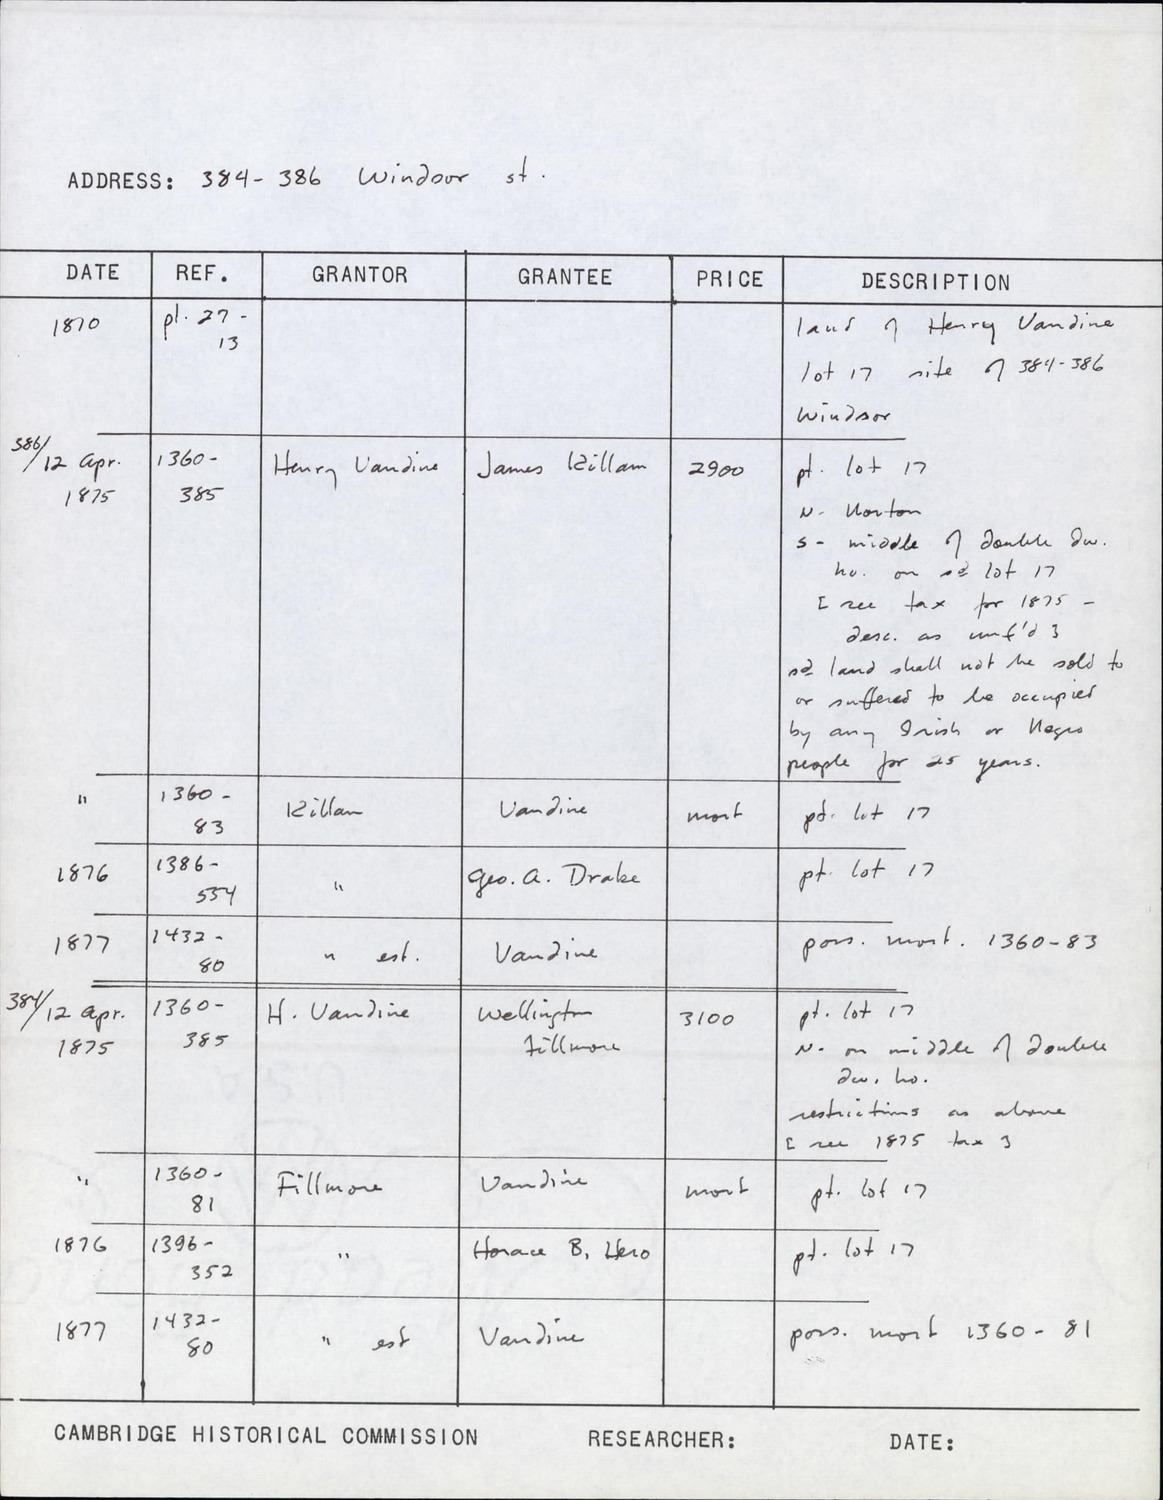 ADDRESS: 384-386 Windsor st.
DATE REF. GRANTOR GRANTEE PRICE DESCRIPTION
1870 pl. 27- land of Henry Vandine
13
lot 17 site of 384-386
Windsor
386/12 Apr. 1360- Henry Vandine James Killam 2900 pt. lot 17
1875 385
N- Norton
S- middle of double dw.
ho. on sd lot 17
[ see tax for 1875 -
desc. as unf'd ]
sd land shall not be sold to
or suffered to be occupied
by any Irish or Negro
people for 25 years.
" 1360- Killam Vandine mort pt. lot 17
83
1876 1386- " Geo. A. Drake pt. lot 17
554
1877 1432- " est. Vandine poss. mort. 1360-83
80
384/12 Apr. 1360- H. Vandine Wellington 3100 pt. lot 17
1875 385 Fillmore
N- on middle of double
dw. ho.
restrictions as above
[ see 1875 tax ]
" 1360- Fillmore Vandine mort pt. lot 17
81
1876 1396- " Horace B. Hero pt. lot 17
352
1877 1432- " est Vandine poss. mort 1360-81
80
CAMBRIDGE HISTORICAL COMMISSION RESEARCHER: DATE: